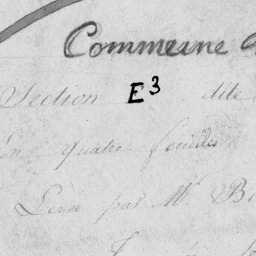 Commune
Section E³ dite
en quatre feuilles
Levé par Mr.